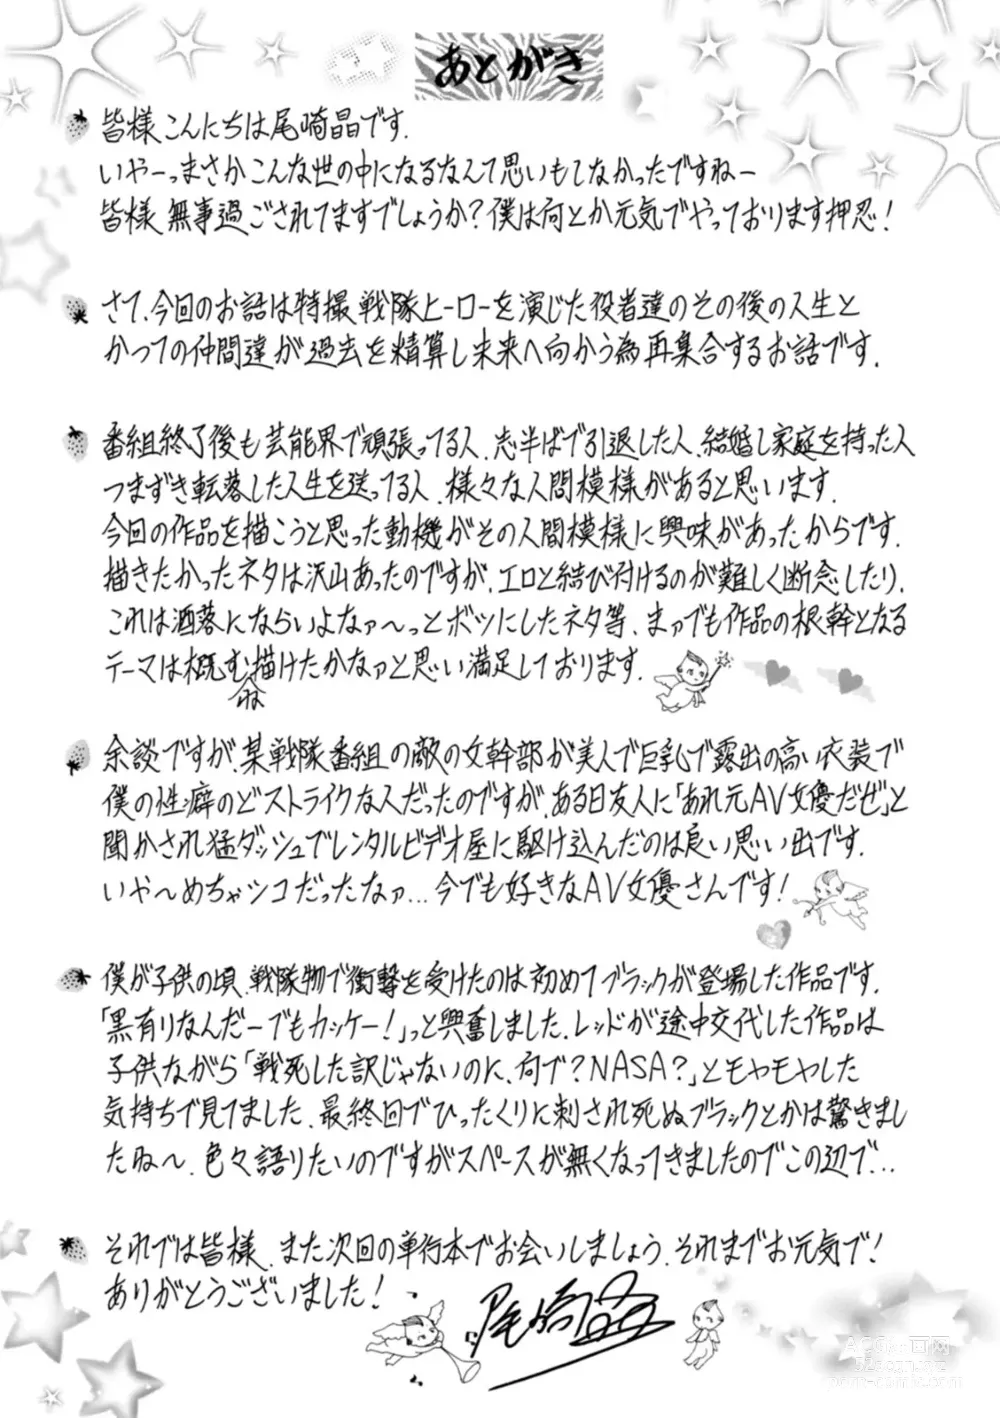 あとがき
皆様こんにちは尾崎晶です.
いやーっまさかこんな世の中になるなんて思いもしなかったですねー
皆様無事過ごされてますでしょうか?僕は何とか元気でやっております押忍!
さて、今回のお話は特撮戦隊ヒーローを演じた役者達のその後の人生と
かつての仲間達が過去を精算し未来へ向かう為再集合するお話です.
番組終了後も芸能界で頑張ってる人、志半ばで引退した人、結婚し家庭を持った人
つまずき転落した人生を送ってる人、様々な人間模様があると思います.
今回の作品を描こうと思った動機がその人間模様に興味があったからです.
描きたかったネタは沢山あったのですが、エロと結び付けるのが難しく断念したり、
これは洒落にならいよなァ〜っとボツにしたネタ等、まァでも作品の根幹となる
テーマは概む描けたかなァと思い満足しております.
ね
余談ですが、某戦隊番組の敵の女幹部が美人で巨乳で露出の高い衣装で
僕の性癖のどストライクな人だったのですが、ある日友人に「あれ元AV女優だぜ」と
聞かされ猛ダッシュでレンタルビデオ屋に駆け込んだのは良い思い出です.
いや〜めちゃシコだったなァ...今でも好きなAV女優さんです!
僕が子供の頃、戦隊物で衝撃を受けたのは初めてブラックが登場した作品です.
「黒有りなんだーでもカッケー!」っと興奮しました、レッドが途中交代した作品は
子供ながら「戦死した訳じゃないのに、何で?NASA?」とモヤモヤした
気持ちで見てました、最終回でひったくりに刺され死ぬブラックとかは驚きまし
たね〜、色々語りたいのですがスペースが無くなってきましたのでこの辺で...
それでは皆様、また次回の単行本でお会いしましょう、それまでお元気で!
ありがとうございました!
尾崎晶